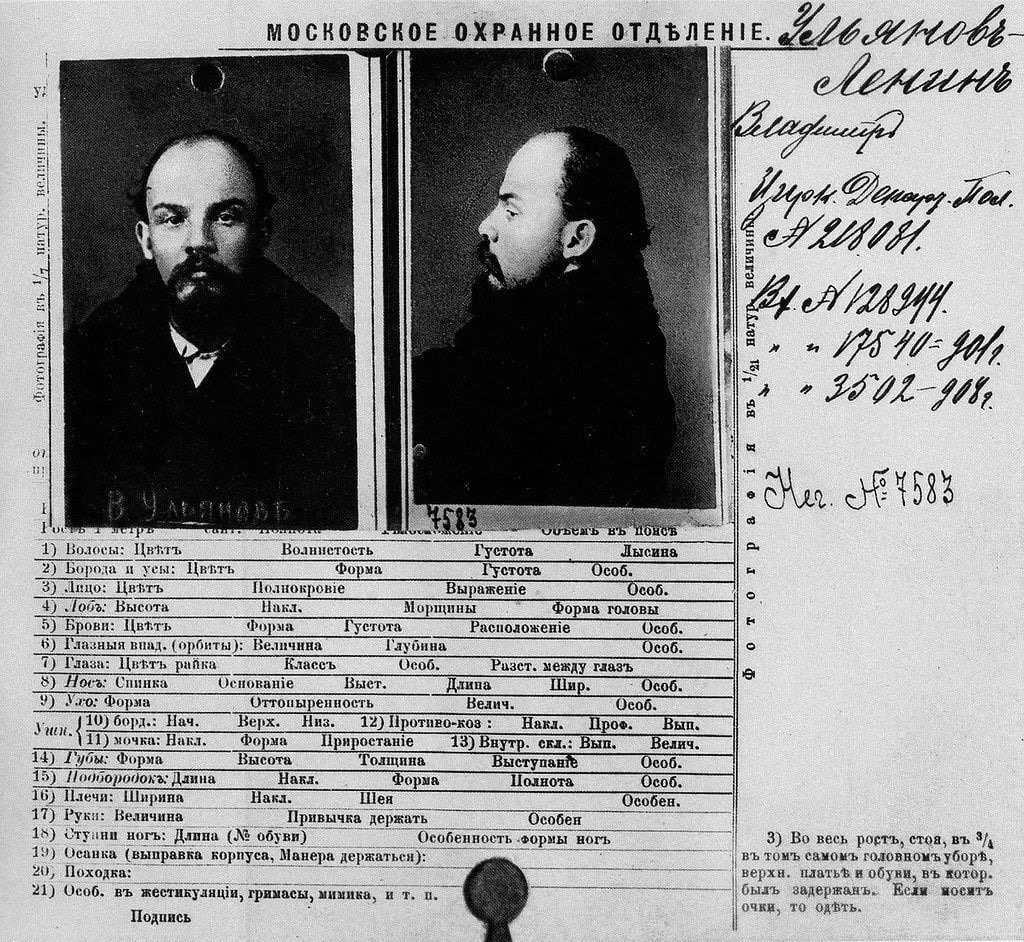 МОСКОВСКОЕ ОХРАННОЕ ОТДѢЛЕНІЕ.
Ульяновъ-
Ленинъ
Владимiръ
Цирк. Депар. Пол.
№ 218081.
Вх. № 128944.
" " 17540 = 901г.
" " 3502 - 908г.
Нег. № 7583
Фотографія въ 1/7 натур. величины.
Фотографія въ 1/21 натур величины
В УЛЬЯНОВЪ
7583
Ростъ 1 метръ сант. Полнота Объемъ въ поясѣ
1) Волосы: Цвѣтъ Волнистость Густота Лысина
2) Борода и усы: Цвѣтъ Форма Густота Особ.
3) Лицо: Цвѣтъ Полнокровіе Выраженіе Особ.
4) Лобъ: Высота Накл. Морщины Форма головы
5) Брови: Цвѣтъ Форма Густота Расположеніе Особ.
6) Глазныя впад. (орбиты): Величина Глубина Особ.
7) Глаза: Цвѣтъ райка Классъ Особ. Разст. между глазъ
8) Носъ: Спинка Основаніе Выст. Длина Шир. Особ.
9) Ухо: Форма Оттопыренность Велич. Особ.
Ушн. { 10) борд.: Нач. Верх. Низ. 12) Противо-коз : Накл. Проф. Вып.
11) мочка: Накл. Форма Приростаніе 13) Внутр. скл.: Вып. Велич.
14) Губы: Форма Высота Толщина Выступаніе Особ.
15) Подбородокъ: Длина Накл. Форма Полнота Особ.
16) Плечи: Ширина Накл. Шея Особен.
17) Руки: Величина Привычка держать Особен
18) Ступни ногъ: Длина (№ обуви) Особенность формы ногъ
19) Осанка (выправка корпуса, Манера держаться):
20) Походка:
21) Особ. въ жестикуляціи, гримасы, мимика, и т. п.
Подпись
3) Во весь ростъ, стоя, въ 3/4
въ томъ самомъ головномъ уборѣ,
верхн. платьѣ и обуви, въ котор.
былъ задержанъ. Если носитъ
очки, то одѣть.